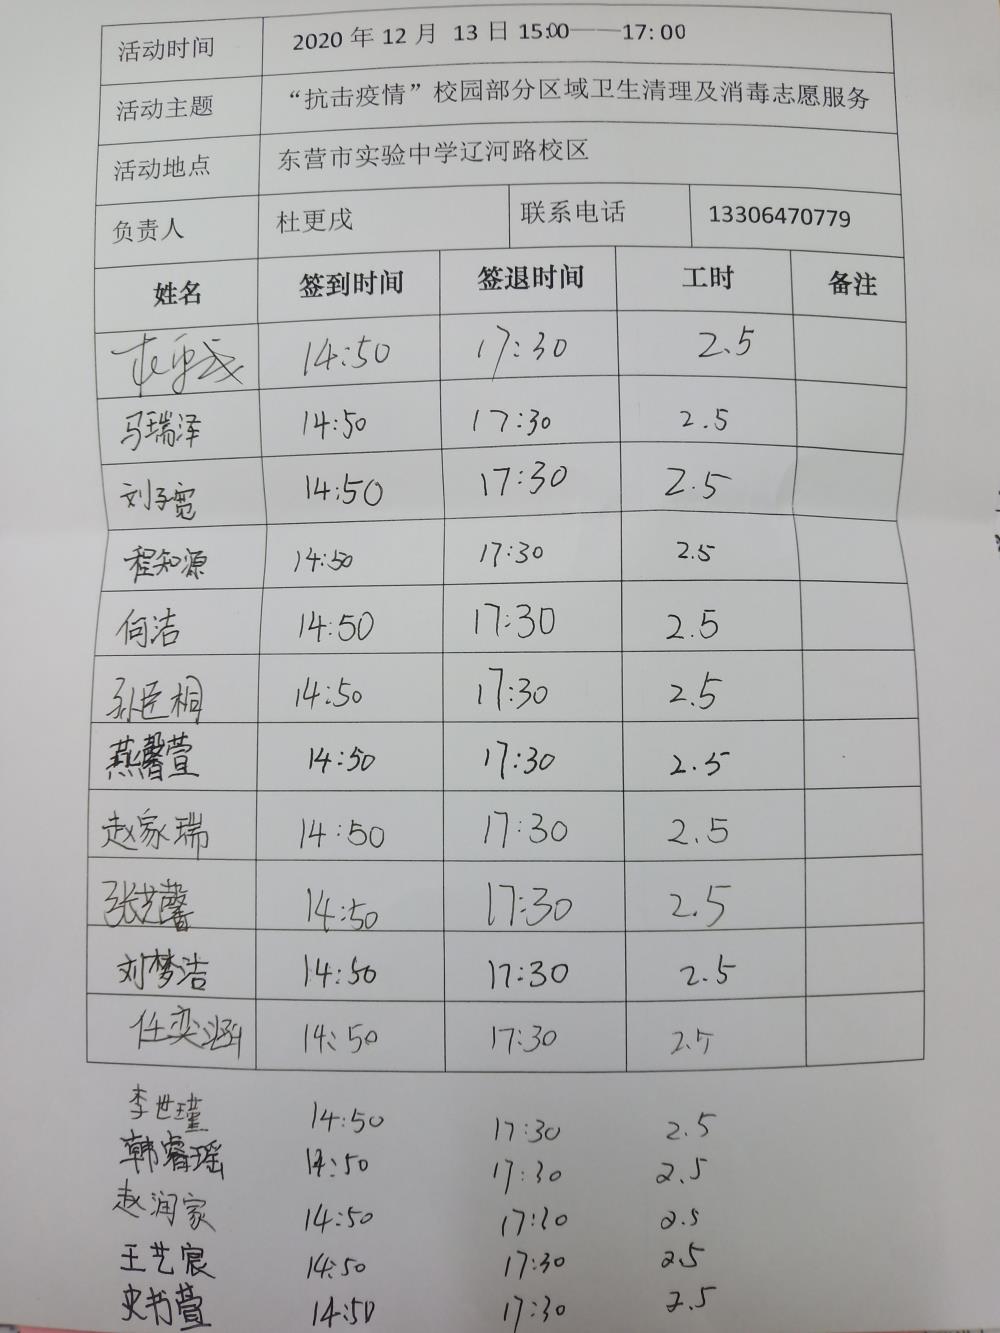 活动时间 2020 年 12 月 13 日 15:00——17:00
活动主题 “抗击疫情”校园部分区域卫生清理及消毒志愿服务
活动地点 东营市实验中学辽河路校区
负责人 杜更戌 联系电话 13306470779
姓名 签到时间 签退时间 工时 备注
杜更戌 14:50 17:30 2.5
马瑞泽 14:50 17:30 2.5
刘子宽 14:50 17:30 2.5
程知源 14:50 17:30 2.5
何洁 14:50 17:30 2.5
孙臣桐 14:50 17:30 2.5
燕馨萱 14:50 17:30 2.5
赵家瑞 14:50 17:30 2.5
张艺馨 14:50 17:30 2.5
刘梦洁 14:50 17:30 2.5
任奕涵 14:50 17:30 2.5
李世瑾 14:50 17:30 2.5
韩睿瑶 14:50 17:30 2.5
赵润家 14:50 17:30 2.5
王艺宸 14:50 17:30 2.5
史书萱 14:50 17:30 2.5